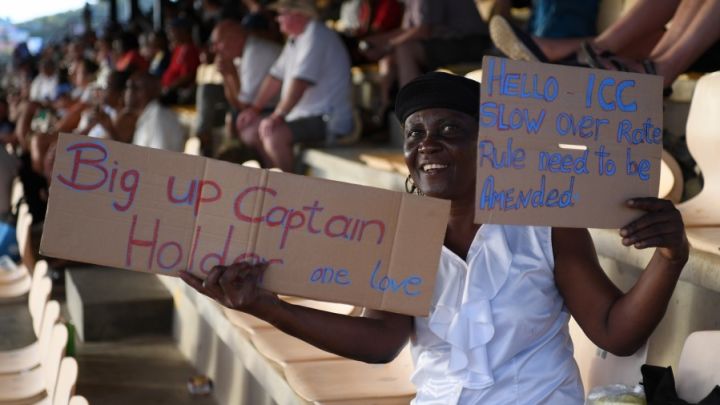 Big up Captain
Holder one love
HELLO - ICC
SLOW over Rate
Rule need to be
AMENDED